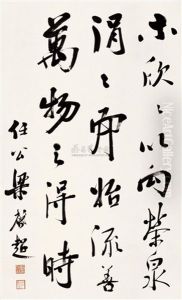 木欣〻以向榮泉
涓〻而始流善
萬物之得時
任公梁啓超